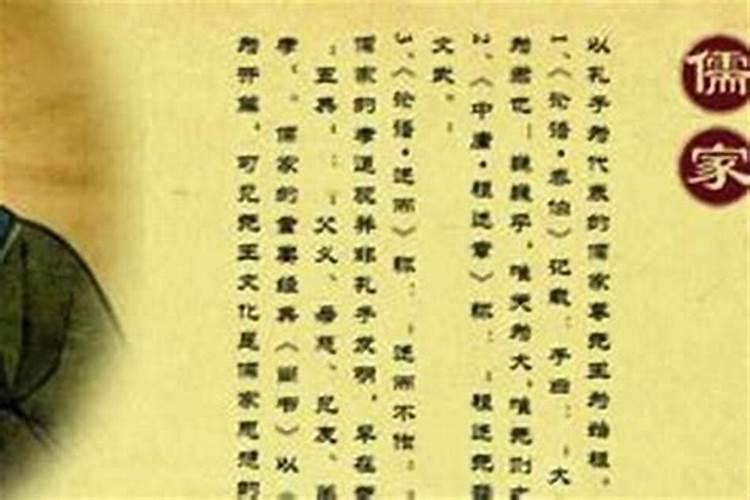 儒家
以孔子为代表的儒家尊尧王为始祖。
1、《论语·泰伯》记载：子曰："大
为君也！巍巍乎，唯天为大，唯尧则
2、《中庸·祖述章》称："祖述尧
文武。"
3、《论语·述而》称："述而不作，
儒家的孝道观并非孔子发明，早在
"五典"："父义、母慈、兄友、
孝"。儒家的重要经典《尚书》以
为开篇，可见尧王文化是儒家思想的